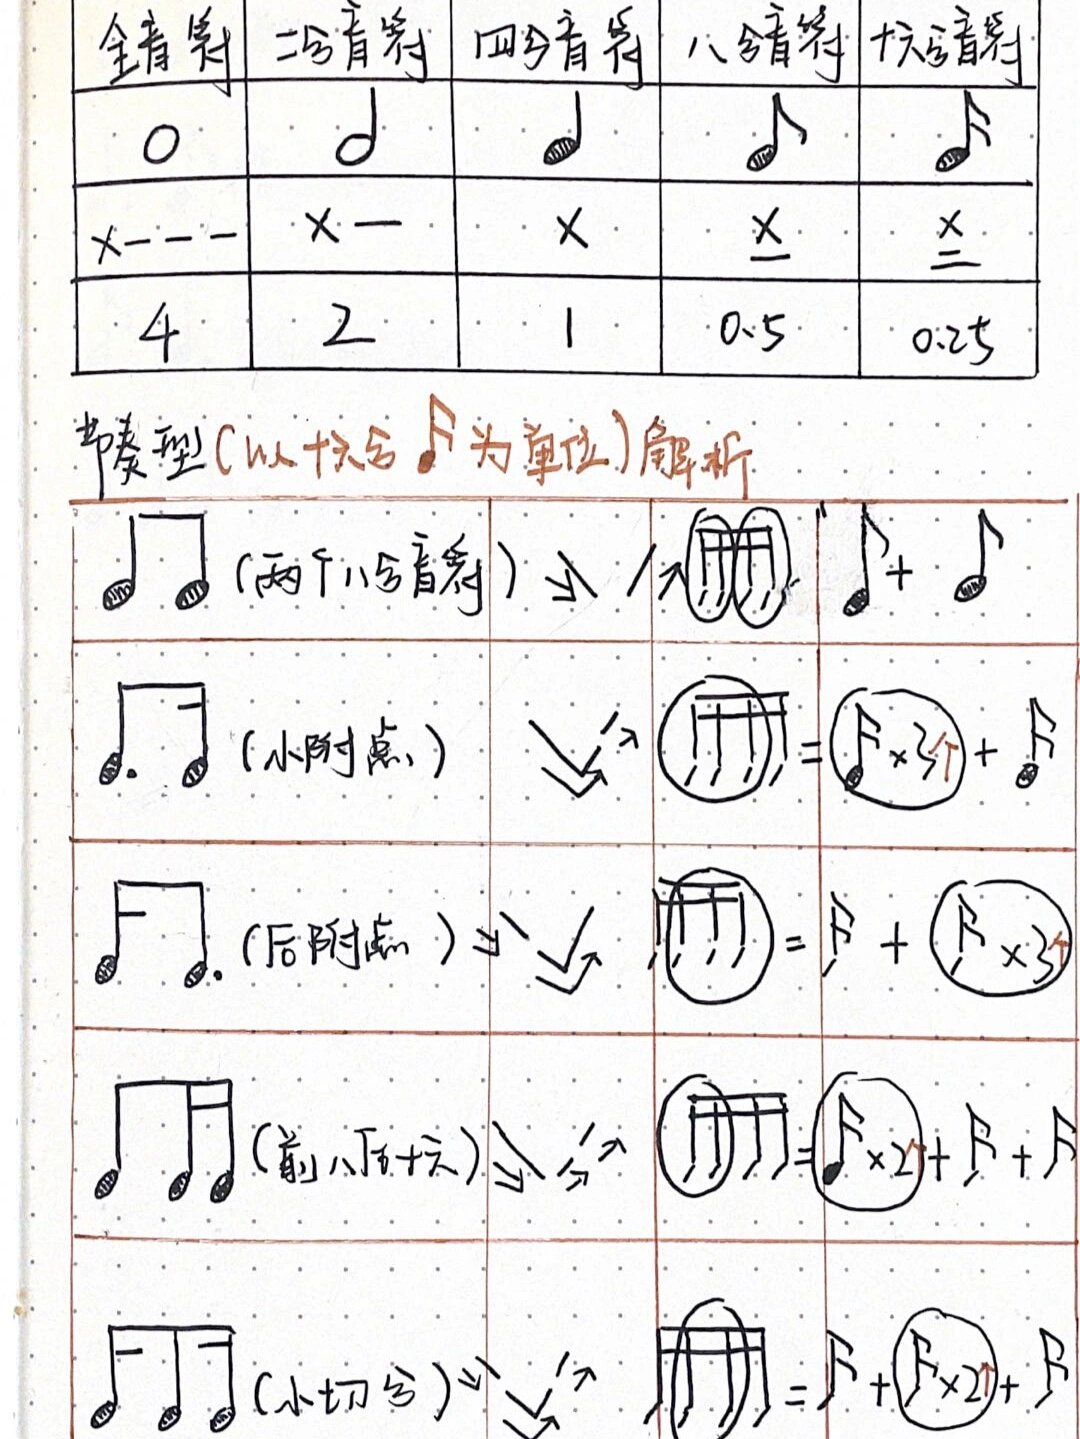 全音符 二分音符 四分音符 八分音符 十六分音符
X--- X— X X X
4 2 1 0.5 0.25
节奏型(以十六分为单位)解析
(两个八分音符) +
(小附点) = ×3个 +
(后附点) = + ×3个
(前八后十六) = ×2个 + +
(小切分) = + ×2个 +